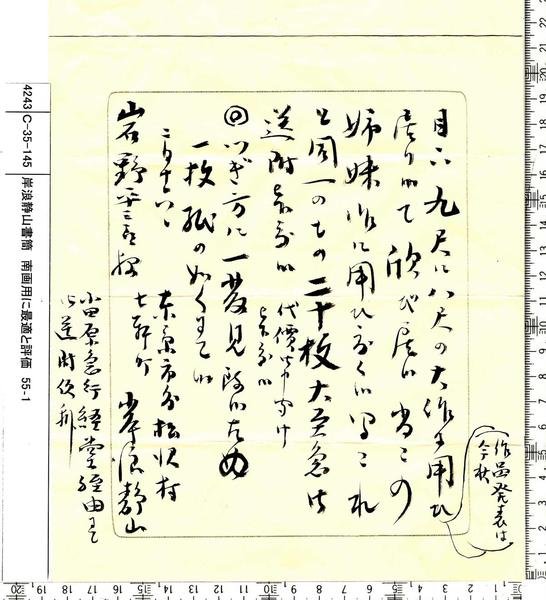 作品発表は
今秋
目下九尺に八尺の大作に用ひ
居りまして欣び居候 尚この
姉妹作に用ひ度く候間これ
と同一のもの二十枚大至急御
送附
代價御申
◎つぎ方に一発見致候ため
一枚紙の如くにて候
東京市外松沢村
岸浪静山
岩野平三郎様
小田原急行経堂経由にて
御送附便利
4243 C-35-145 岸浪静山書簡 南画用に最適と評価 55-1